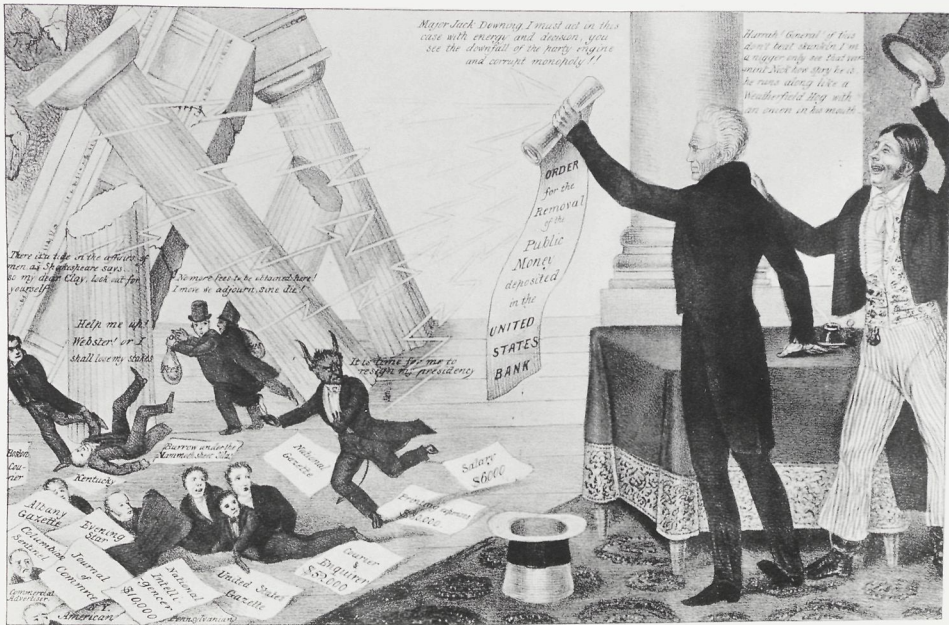 Major Jack Downing. I must act in this
case with energy and decision, you
see the downfall of the party engine
and corrupt monopoly!!
Hurrah! General! if this
don't beat skunkin, I'm
a nigger, only see that var-
mint Nick how spry he is,
he runs along like a
Weatherfield Hog with
an onion in his mouth.
ORDER
for the
Removal
of the
Public
Money
deposited
in the
UNITED
STATES
BANK
There is a tide in the affairs of
men as Shakespeare says,
so my dear Clay, look out for
yourself.
No more fees to be obtained here!
I move we adjourn, sine die!
Help me up!
Webster! or I
shall lose my stakes
Fees
It is time for me to
resign my presidency
Burrow under the
Mammoth
Kentucky
Boston
Cou-
rier
National
Gazette
Salary
$6000
Albany
Gazette
Evening
Star
Columbian
Sentinel
Journal
of
Commrce
National
Intelli
gencer
$10000
United States
Gazette
Courier
&
Enquirer
$52000
Commercial
Advertiser
N.Y.
American
Pennsylvanian